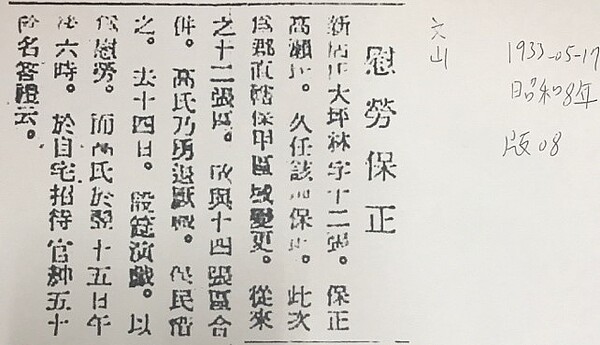 1933-05-17
昭和8年
版08
文山
慰勞保正
新店庄大坪林字十二張。保正
高瀨。久任該保正。此次
爲郡直轄保甲區域變更。從來
之十二張區。改與十四張區合
併。高氏乃勇退厥職。保民
之。去十四日。設筵演戲。以
慰勞。而高氏於翌十五日午
後六時。於自宅招待官紳五十
餘名答禮云。